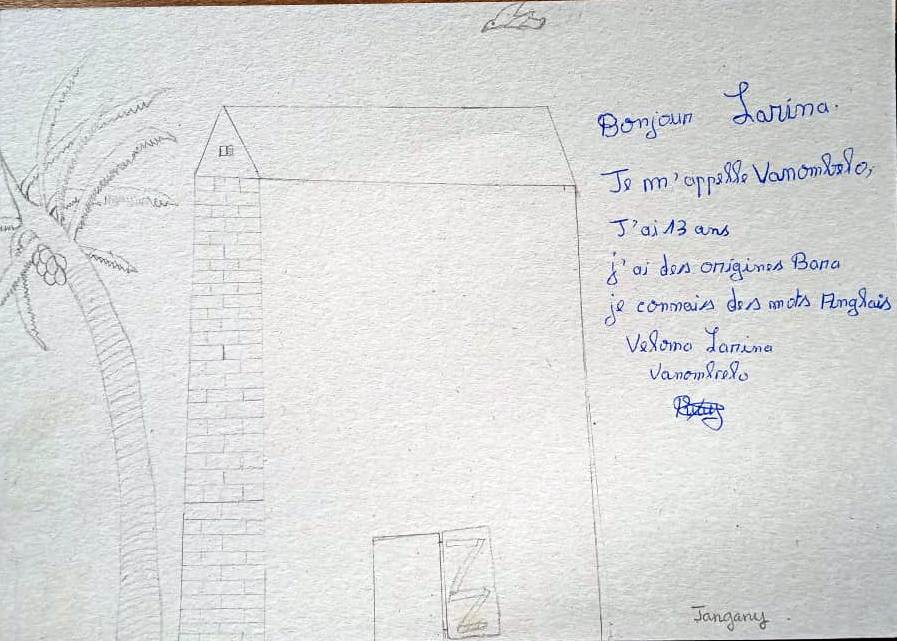 Bonjour Larina.
Je m'appelle Vanombelo,
J'ai 13 ans
j'ai des origines Bara
je connais des mots Anglais
Veloma Larina
Vanombelo
Jangany.